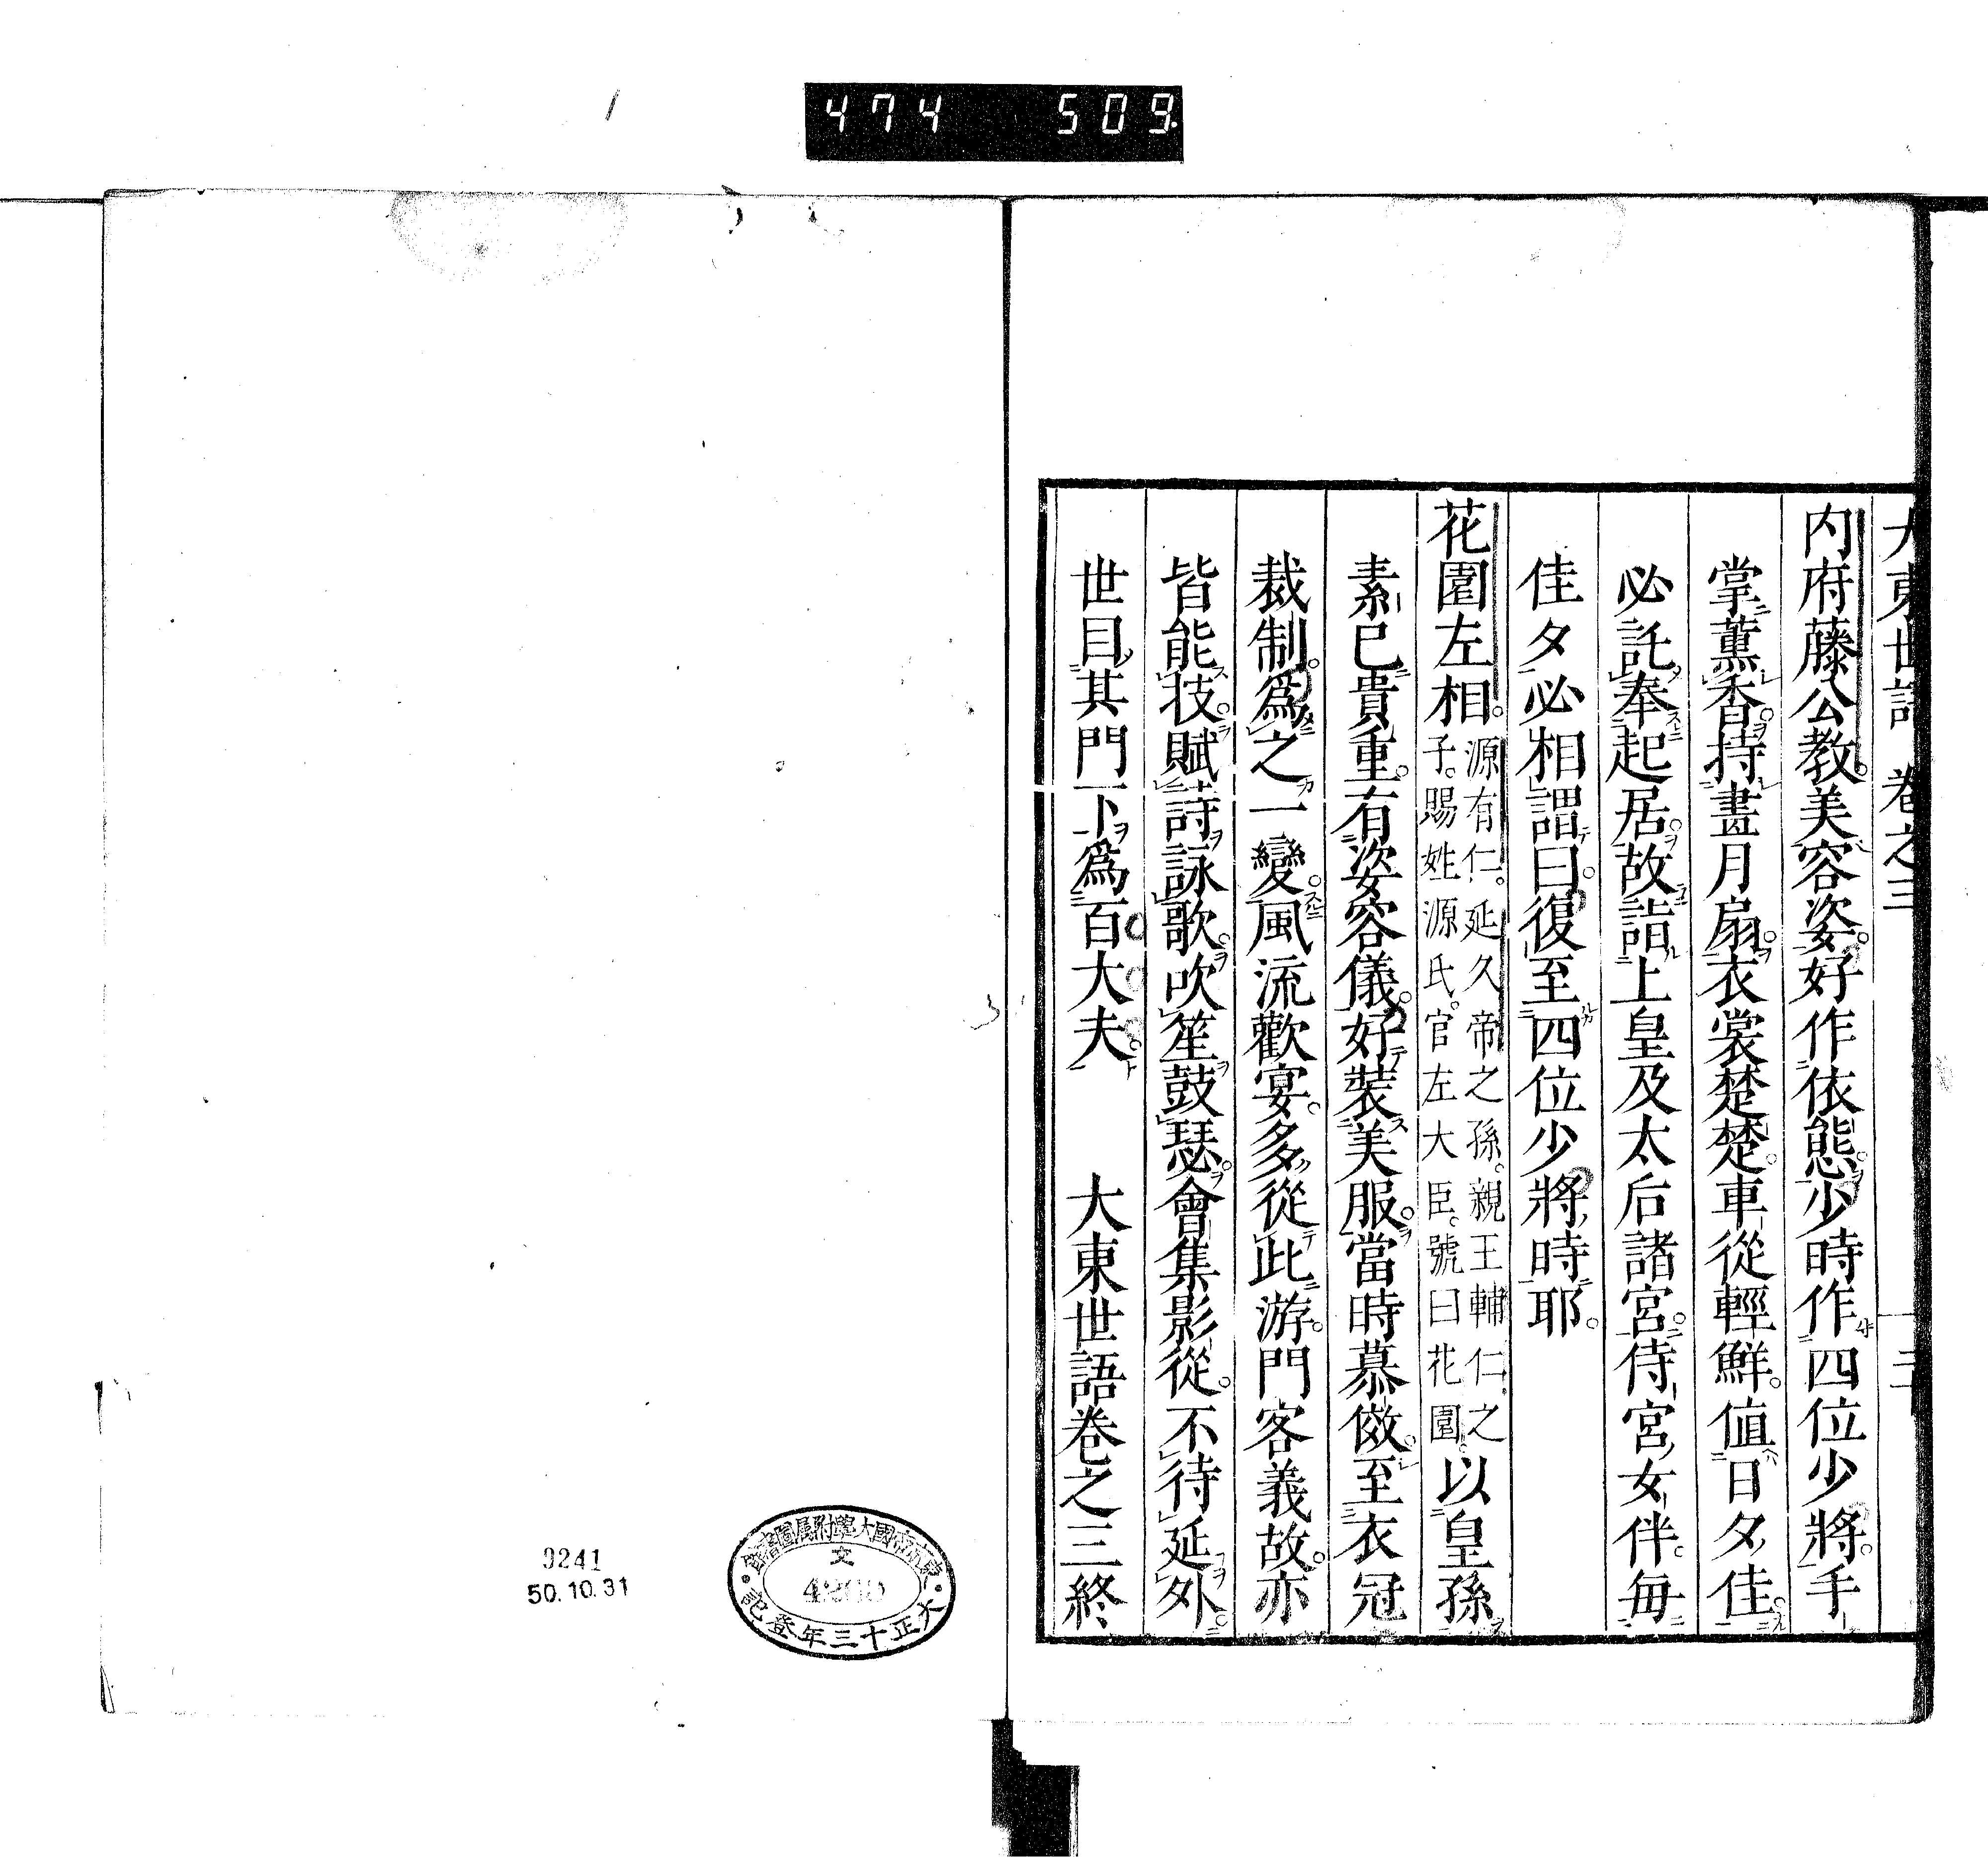 474 509
大東世語 卷之三
内府藤公教。美容姿。好作依態。少時作四位少將。手
掌薰香。持畫月扇。衣裳楚楚。車從輕鮮。値日夕佳。
必託奉起居。故詣上皇及太后諸宮。侍宮女伴。每
佳夕必相謂曰。復至四位少將時耶。
花園左相。源有仁。延久帝之孫。親王輔仁之子。賜姓源氏。官左大臣。號曰花園。以皇孫
素已貴重。有姿容儀。好裝美服。當時慕傚。至衣冠
裁制。爲之一變。風流歡宴。多從此游。門客義故。亦
皆能技。賦詩詠歌。吹笙鼓瑟。會集影從。不待延外。
世目其門下爲百大夫。
大東世語卷之三終
東京帝國大學附屬圖書館
文
大正十三年登記
0241
50.10.31